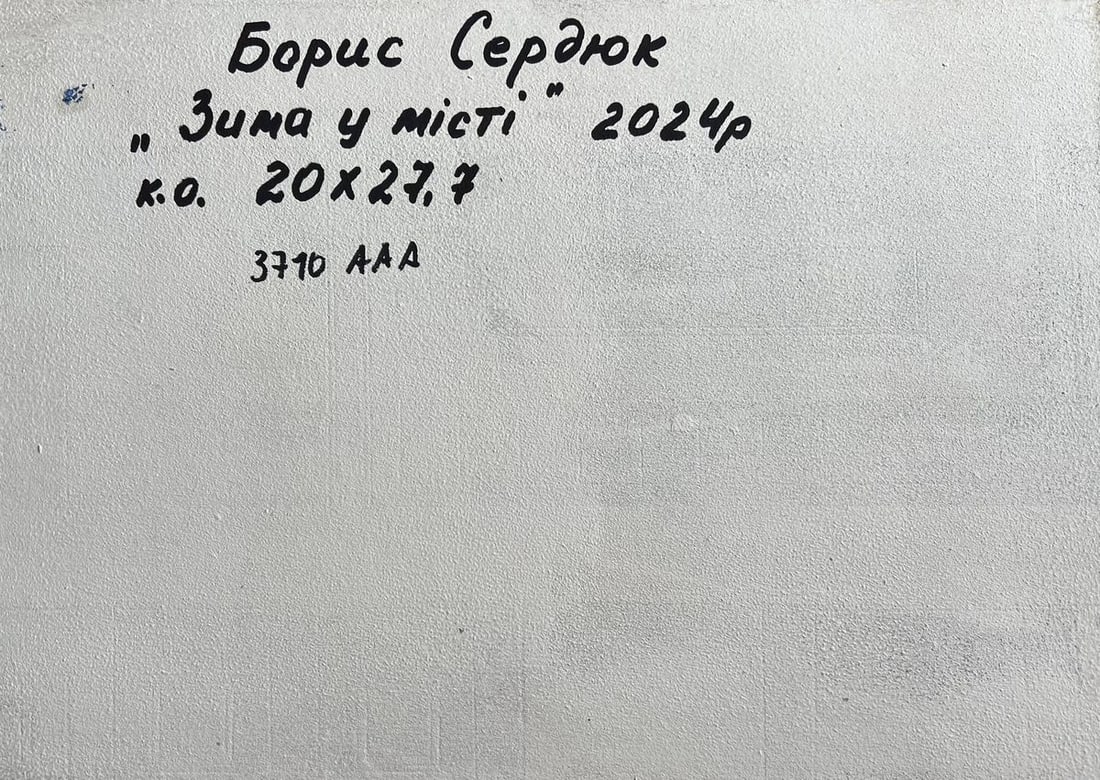 Борис Сердюк
„Зима у місті" 2024р
к.о. 20x27,7
3710 AAA